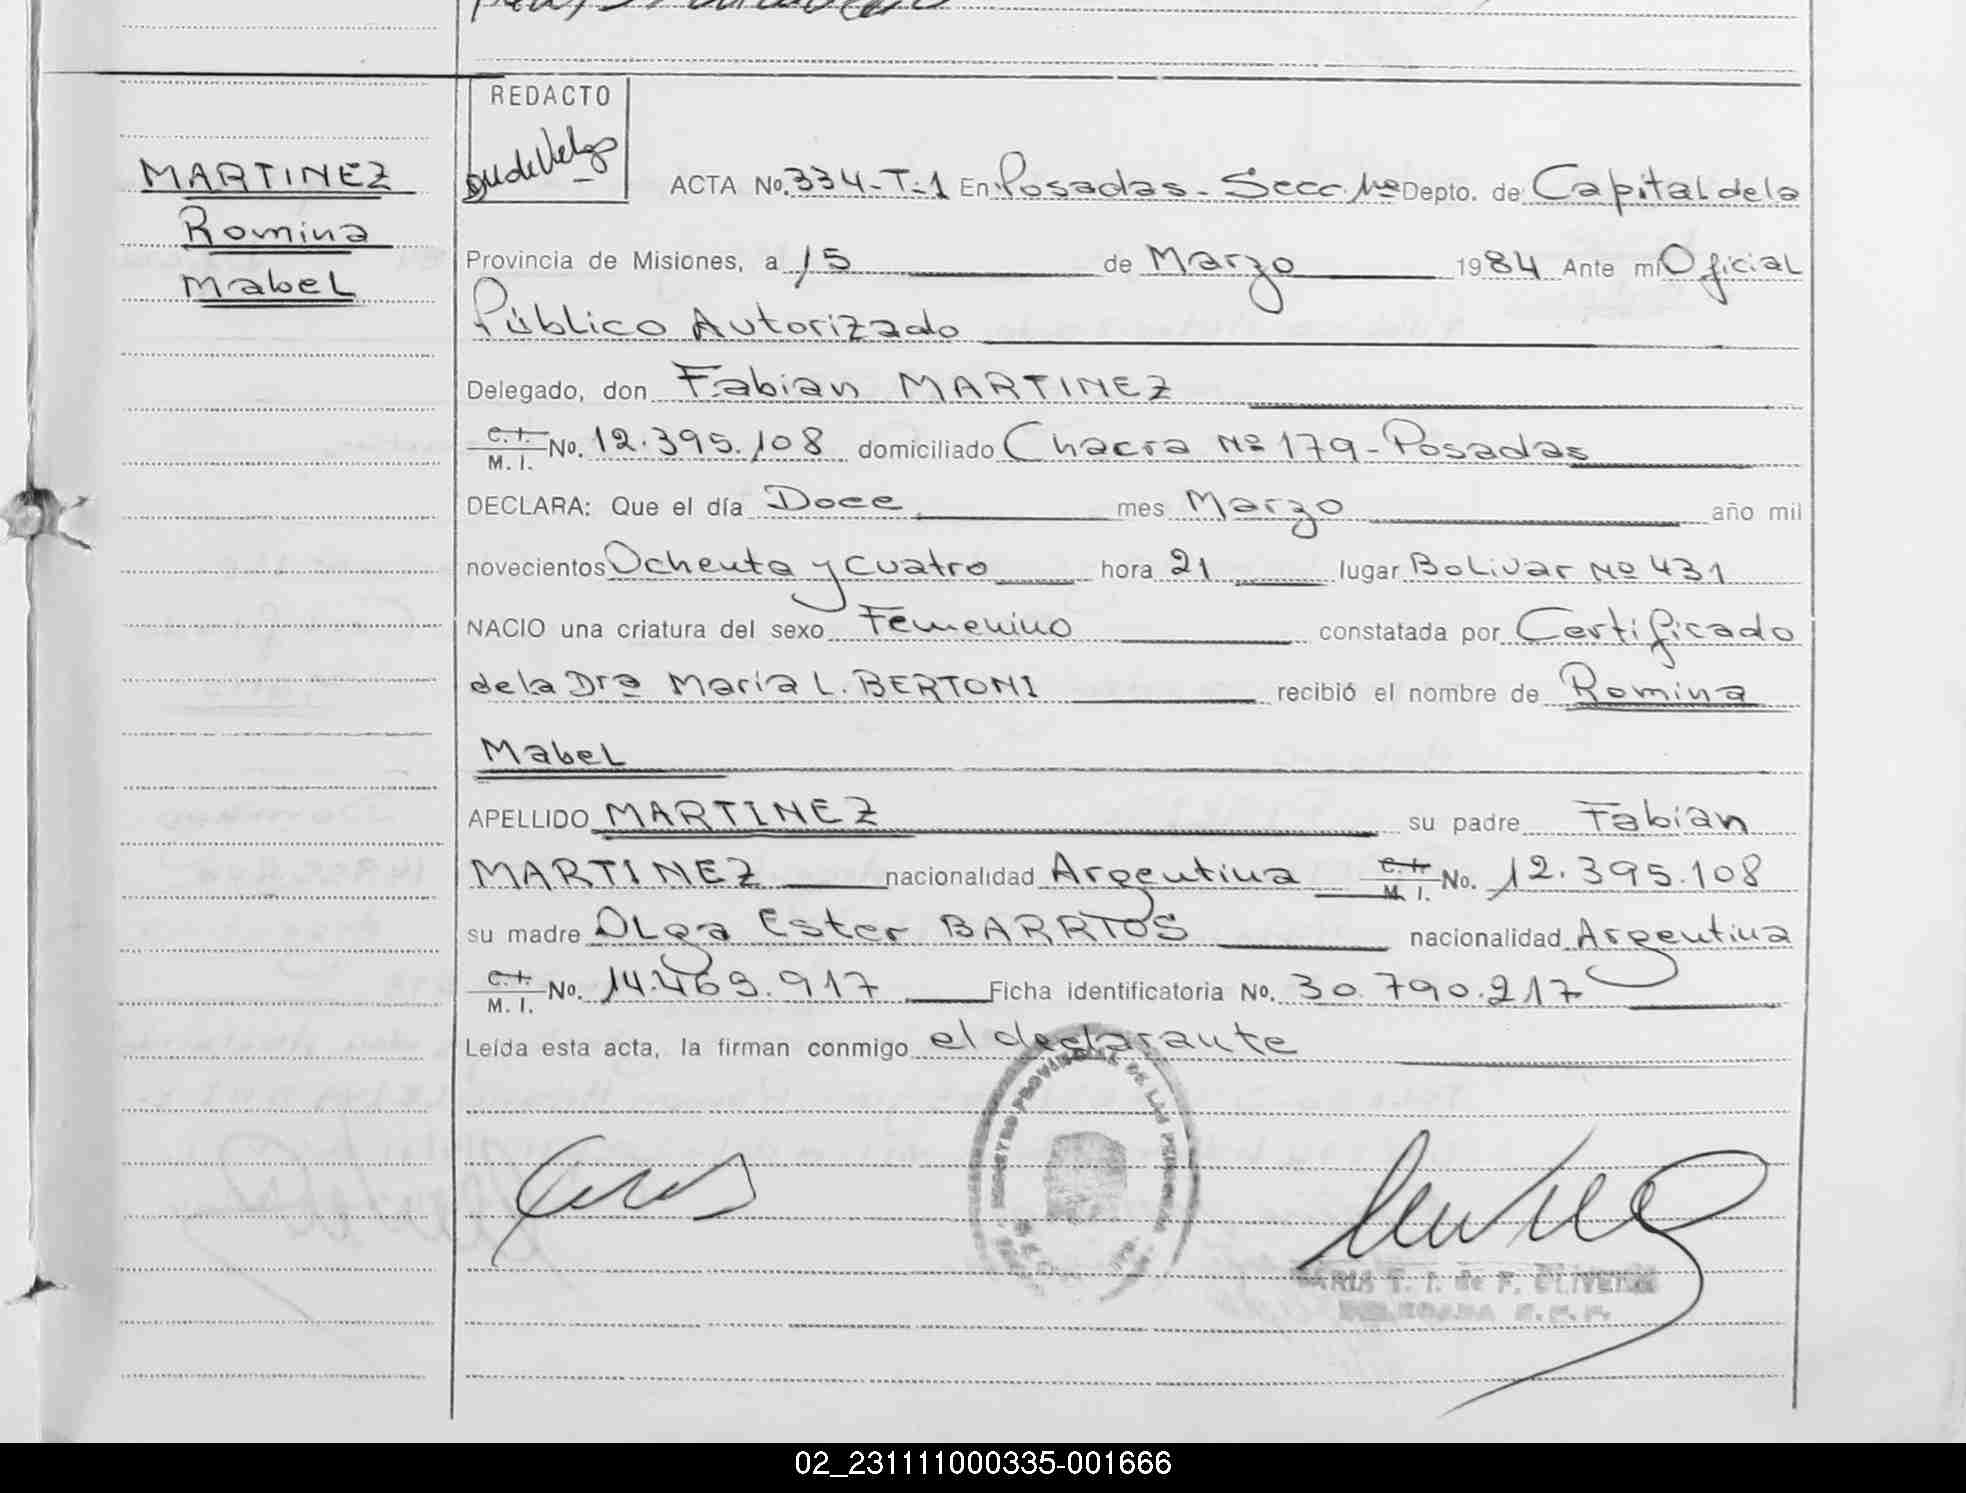 REDACTO
MARTINEZ
Romina
Mabel
ACTA No. 334-T-1 En Posadas - Secc. 1ra Depto. de Capital de la
Provincia de Misiones, a 15 de Marzo 1984 Ante mí Oficial
Público Autorizado
Delegado, don Fabian MARTINEZ
C.I. M. I. No. 12.395.108 domiciliado Chacra Nº 179 - Posadas
DECLARA: Que el día Doce mes Marzo año mil
novecientos Ochenta y cuatro hora 21 lugar Bolivar Nº 431
NACIO una criatura del sexo Femenino constatada por Certificado
de la Dra María L. BERTONI recibió el nombre de Romina
Mabel
APELLIDO MARTINEZ su padre Fabian
MARTINEZ nacionalidad Argentina C.I. M. I. No. 12.395.108
su madre Olga Ester BARRIOS nacionalidad Argentina
C.I. M. I. No. 14.469.917 Ficha identificatoria No. 30.790.217
Leída esta acta, la firman conmigo el declarante
REGISTRO PROVINCIAL DE LAS PERSONAS
MARIA T. I. de F. OLIVEIRA
DELEGADA R.P.P.
02_231111000335-001666